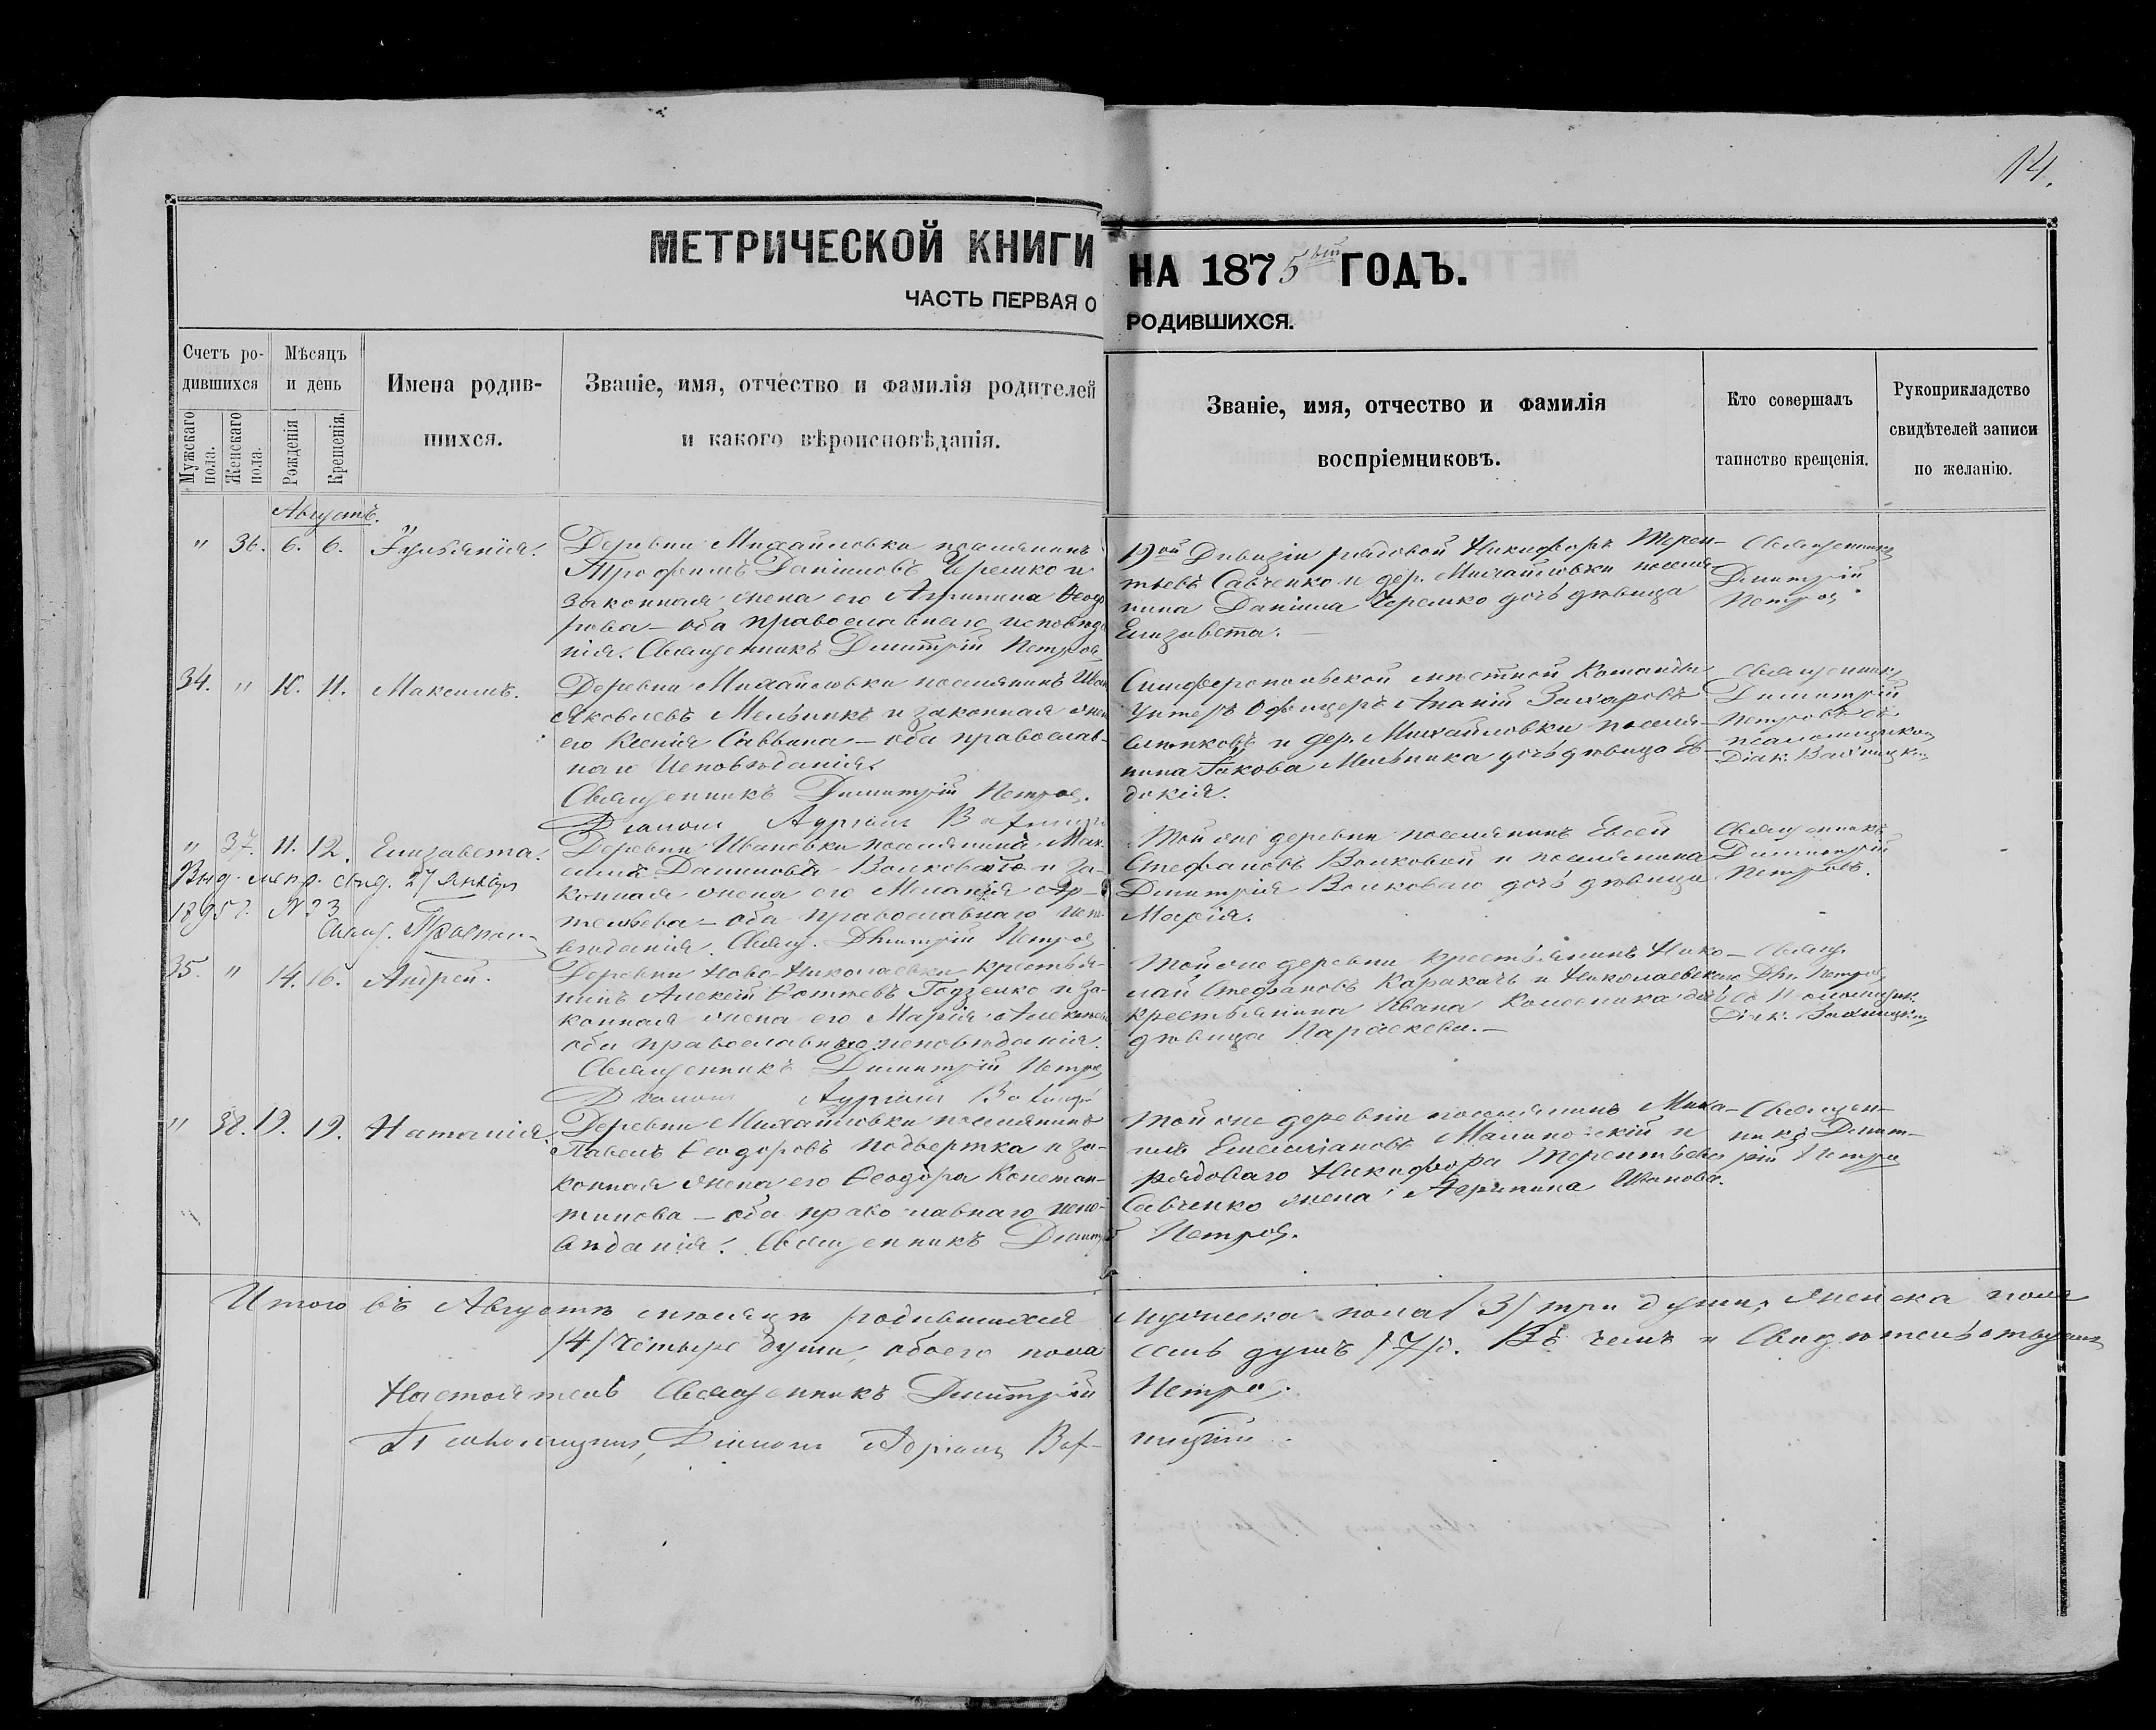 14.
МЕТРИЧЕСКОЙ КНИГИ НА 1875ый ГОДЪ.
ЧАСТЬ ПЕРВАЯ О РОДИВШИХСЯ.
Счетъ ро-
дившихся
Мужскаго пола.
Женскаго пола.
Мѣсяцъ
и день
Рожденія
Крещенія.
Имена родив-
шихся.
Званіе, имя, отчество и фамилія родителей
и какого вѣроисповѣданія.
Званіе, имя, отчество и фамилія
воспріемниковъ.
Кто совершалъ
таинство крещенія.
Рукоприкладство
свидѣтелей записи
по желанію.
Августъ.
" 36. 6. 6. Іуліанія.
Деревни Михайловки поселянинъ
Трофимъ Даніиловъ Черешко и
законная жена его Агрипина Ѳеодо
рова — оба православнаго исповѣда
нія. Священникъ Димитрій Петровъ
19ой Дивизіи рядовой Никифоръ Терен-
тьевъ Савченко и дер. Михайловки поселя-
нина Даніила Черешко дочь дѣвица
Елизавета. —
Священникъ
Димитрій
Петровъ
34. " 10. 11. Максимъ.
Деревни Михайловки поселянинъ Иван
Яковлевъ Мельникъ и законная жена
его Ксенія Саввина — оба православ-
наго исповѣданія.
Священникъ Димитрій Петровъ.
Діаконъ Адріанъ
Симферопольской мѣстной Команды
Унтеръ Офицеръ Ананій Захаровъ
и дер. Михайловки поселя-
нина Іакова Мельника дочь дѣвица Ев-
докія.
Священникъ
Димитрій
Петровъ съ
псаломщикомъ
Діак.
" 37. 11. 12. Елизавета.
Выд. метр. свид. 27 Января
1895 г. № 23
Свящ.
Деревни Ивановки поселянина Мак-
сима Данилова Волковаго и за-
конная жена его Меланія Ар-
темьева — оба православнаго испо-
вѣданія. Свящ. Дмитрій Петровъ
Той же деревни поселянинъ Евсей
Стефановъ Волковой и поселянина
Димитрія Волковаго дочь дѣвица
Марія.
Священникъ
Димитрій
Петровъ.
35. " 14. 16. Андрей.
Деревни Ново-Николаевки крестья-
нинъ Алексій Годзенко и за-
конная жена его Марія Алексѣева
оба православнаго исповѣданія.
Священникъ Димитрій Петровъ
Діаконъ Адріанъ
Той же деревни крестьянинъ Нико-
лай Стефановъ Каракачъ и Николаевскаго
крестьянина Ивана Колесника дочь
дѣвица Параскева. —
Свящ.
Дм. Петровъ
съ Псаломщик.
Діак.
" 38. 19. 19. Наталія.
Деревни Михайловки поселянинъ
Павелъ Ѳеодоровъ Подвертка и за-
конная жена его Ѳеодора Констан-
тинова — оба православнаго испо-
вѣданія. Священникъ Димитрій Петровъ.
Той же деревни поселянинъ Миха-
илъ Емеліановъ Малиновскій и
рядоваго Никифора Терентьева
Савченко жена Агрипина Иванова.
Священ-
никъ Димит-
рій Петровъ
Итого въ Августѣ мѣсяцѣ родившихся мужеска пола /3/ три души, женска пола
/4/ четыре души, обоего пола семь душъ /7/. Въ чемъ и Свидѣтельствуемъ
Настоятель Священникъ Димитрій Петровъ.
Псаломщикъ, Діаконъ Адріанъ